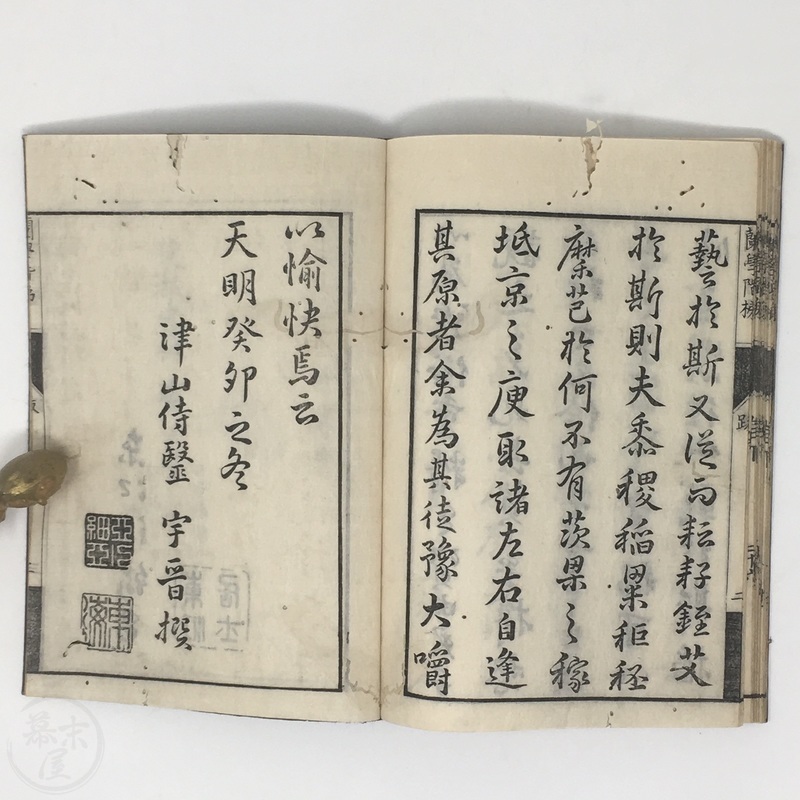 蘭學階梯 跋 二
藝於斯又從而耘耔銍艾
於斯則夫黍稷稻粱秬秠
穈芑於何不有茨梁之稼
坻京之庾取諸左右自逢
其原者余為其徒豫大嚼
以愉快焉云
天明癸卯之冬
津山侍毉 宇晉撰
幕末屋